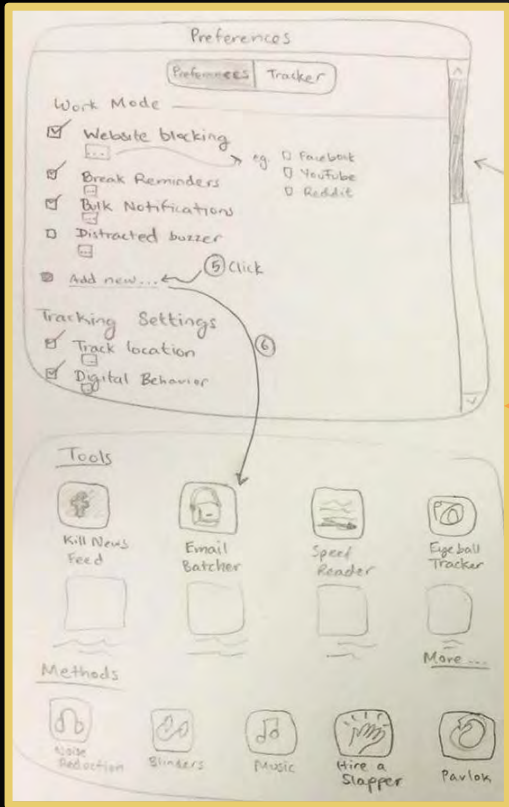 Preferences
Preferences Tracker
Work Mode
Website blocking
...
eg. Facebook
YouTube
Reddit
Break Reminders
...
Bulk Notifications
...
Distracted buzzer
...
5 Click
Add new...
Tracking Settings
6
Track location
Digital Behavior
Tools
Kill News Feed
Email Batcher
Speed Reader
Eyeball Tracker
More ...
Methods
Noise Reduction
Blinders
Music
Hire a Slapper
Pavlok